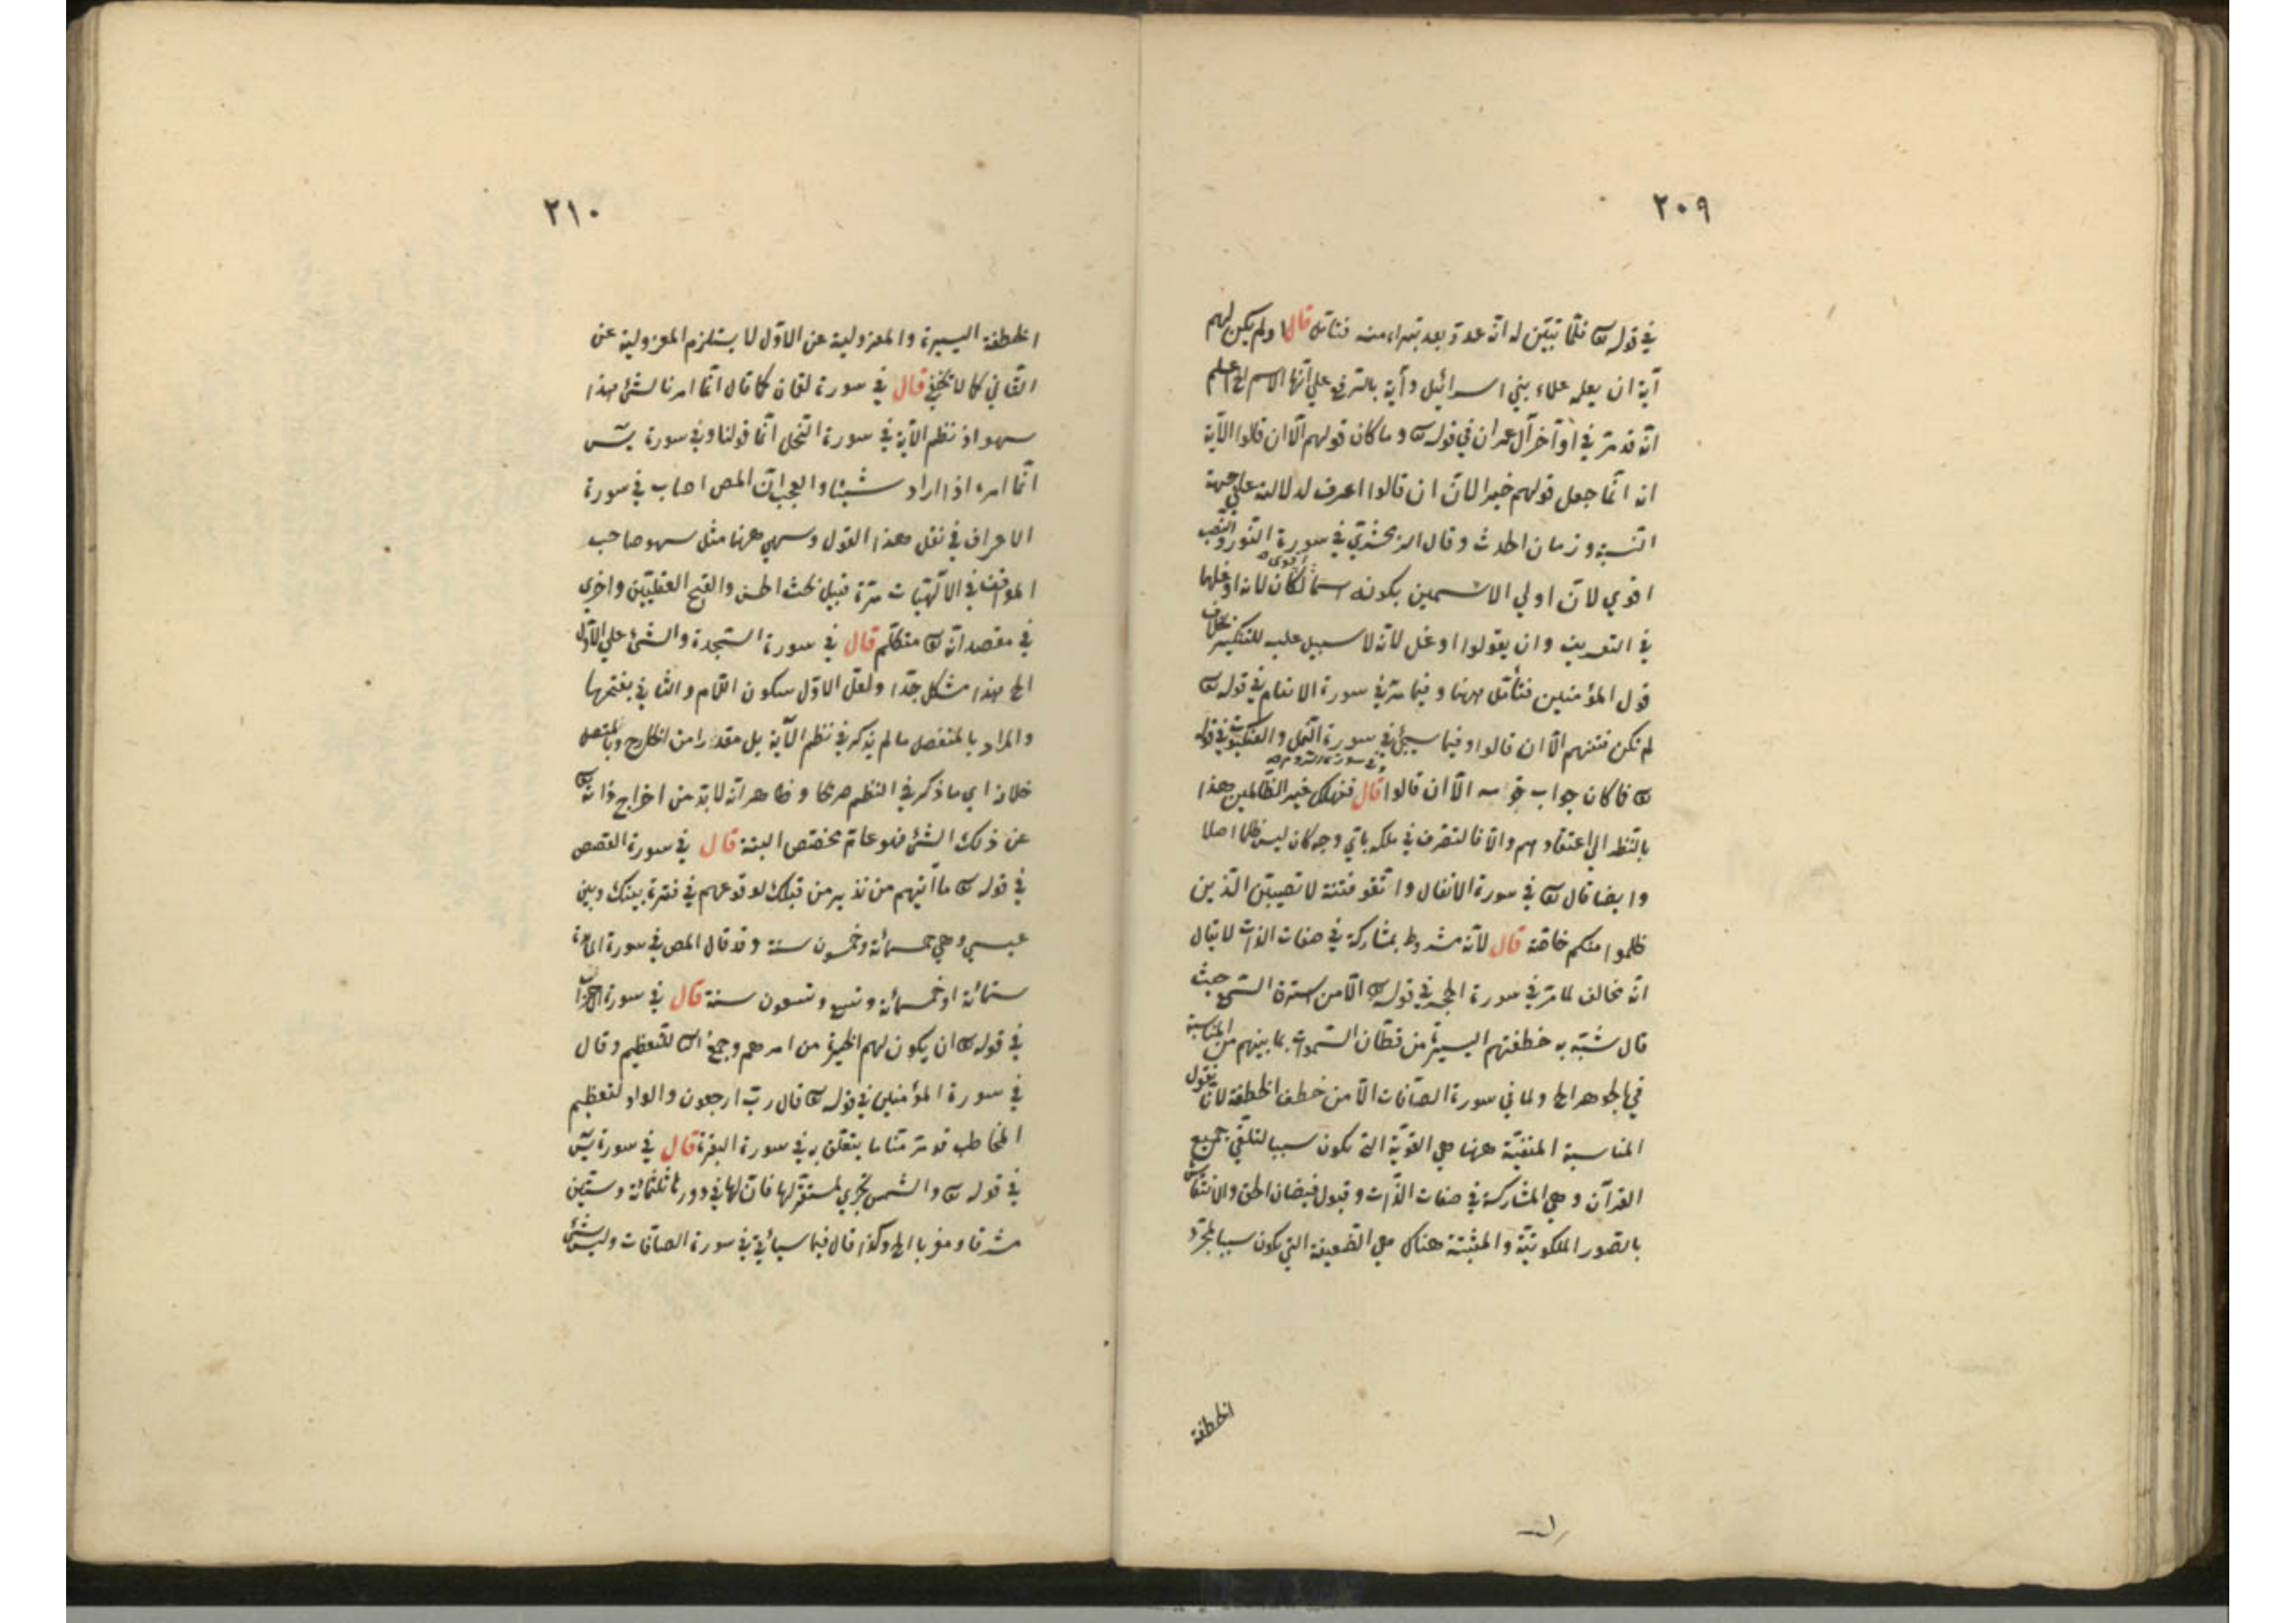 ٢٠٩
في قوله تع فلما تبيّن له انه عدو بعد تبراء منه فتامّل قال اولم يكن لهم
آية ان يعلمه علماء بني اسرائيل وآية بالرفع علي انها الاسم الخ اعلم
انه قد مرّ في اواخر آل عمران في قوله تع وما كان قولهم الّا ان قالوا الآية
انه انّما جعل قولهم خبرا لانّ ان قالوا اعرف لدلالته علي جهة
النسبة وزمان الحدث وقال الزمخشري في سورة النور والنصب
اقوي لانّ اولي الاسمين بكونه اسما لكان لانه اوغلهما
في التعريف وان يقولوا اوغل لانّه لا سبيل عليه للتنكير بخلاف
قول المؤمنين فتأمّل ههنا وفيما مرّ في سورة الانعام في قوله تع
لم تكن فتنتهم الّا ان قالوا وفيما سيجئ في سورة النمل والعنكبوت في قوله
تع فما كان جواب قومه الّا ان قالوا قال فنهلك غير الظالمين هذا
بالنظر الي اعتقادهم والّا فالتصرف في ملكه باي وجه كان ليس ظلما اصلا
وايضا قال تع في سورة الانفال واتقو فتنة لا تصيبنّ الذين
ظلموا منكم خاصّة قال لانّه مشروط بمشاركة في صفات الذات لا يقال
انّه مخالف لما مرّ في سورة الحجر في قوله تع الّا من استرق السّمع حيث
قال شبّه به خطفتهم اليسيرة من قطّان السّموات بما بينهم من المناسبة
في الجوهر الخ ولما في سورة الصافات الّا من خطف الخطفة لانّا نقول
المناسبة المنفيّة ههنا هي القويّة التي تكون سببا لتلقي جميع
القرآن وهي المشاركة في صفات الذّات وقبول فيضان الحق والانتقاش
بالصّور الملكوتيّة والمثبتة هناك هي الضّعيفة التي تكون سببا لمجرّد
الخطفة
٢١٠
الخطفة اليسيرة والمعزولية عن الاوّل لا يستلزم المعزولية عن
الثّاني كما لا يخفي قال في سورة لقمان كما قال انّما امرنا لشئ هذا
سهو اذ نظم الآية في سورة النّحل انّما قولنا وفي سورة يس
انّما امره اذا اراد شيئا والعجب انّ المص اصاب في سورة
الاعراف في نقل هذا القول وسهي ههنا مثل سهو صاحب
المواقف في الآلهيّات مرّة قبيل بحث الحسن والقبح العقليّين واخري
في مقصد انّه تع متكلّم قال في سورة السّجدة والشئ علي الاوّل
الخ هذا مشكل جدّا ولعلّ الاوّل سكون اللّام والثاني بفتحها
والمراد بالمنفصل ما لم يذكر في نظم الآية بل مقدّرا من الخارج وبالمتصل
خلافه اي ما ذكر في النظم صريحا وظاهر انّه لا بدّ من اخراج ذاته تع
عن ذلك الشئ فهو عامّ مخصّص البتة قال في سورة القصص
في قوله تع ما آتيهم من نذير من قبلك لوقوعهم في فترة بينك وبين
عيسي وهي خمسمائة وخمسون سنة وقد قال المص في سورة المائدة
ستمائة او خمسمائة وتسع وتسعون سنة قال في سورة الاحزاب
في قوله تع ان يكون لهم الخيرة من امرهم وجمع الثا للتعظيم وقال
في سورة المؤمنين في قوله تع قال ربّ ارجعون والواو لتعظيم
المخاطب قد مرّ منّا ما يتعلّق به في سورة البقرة قال في سورة يس
في قوله تع والشمس تجري لمستقرّ لها فانّ لها في دورها ثلثمائة وستين
مشرقا ومغربا الخ وكذا قال فيما سيأتي في سورة الصافات وليس شئ